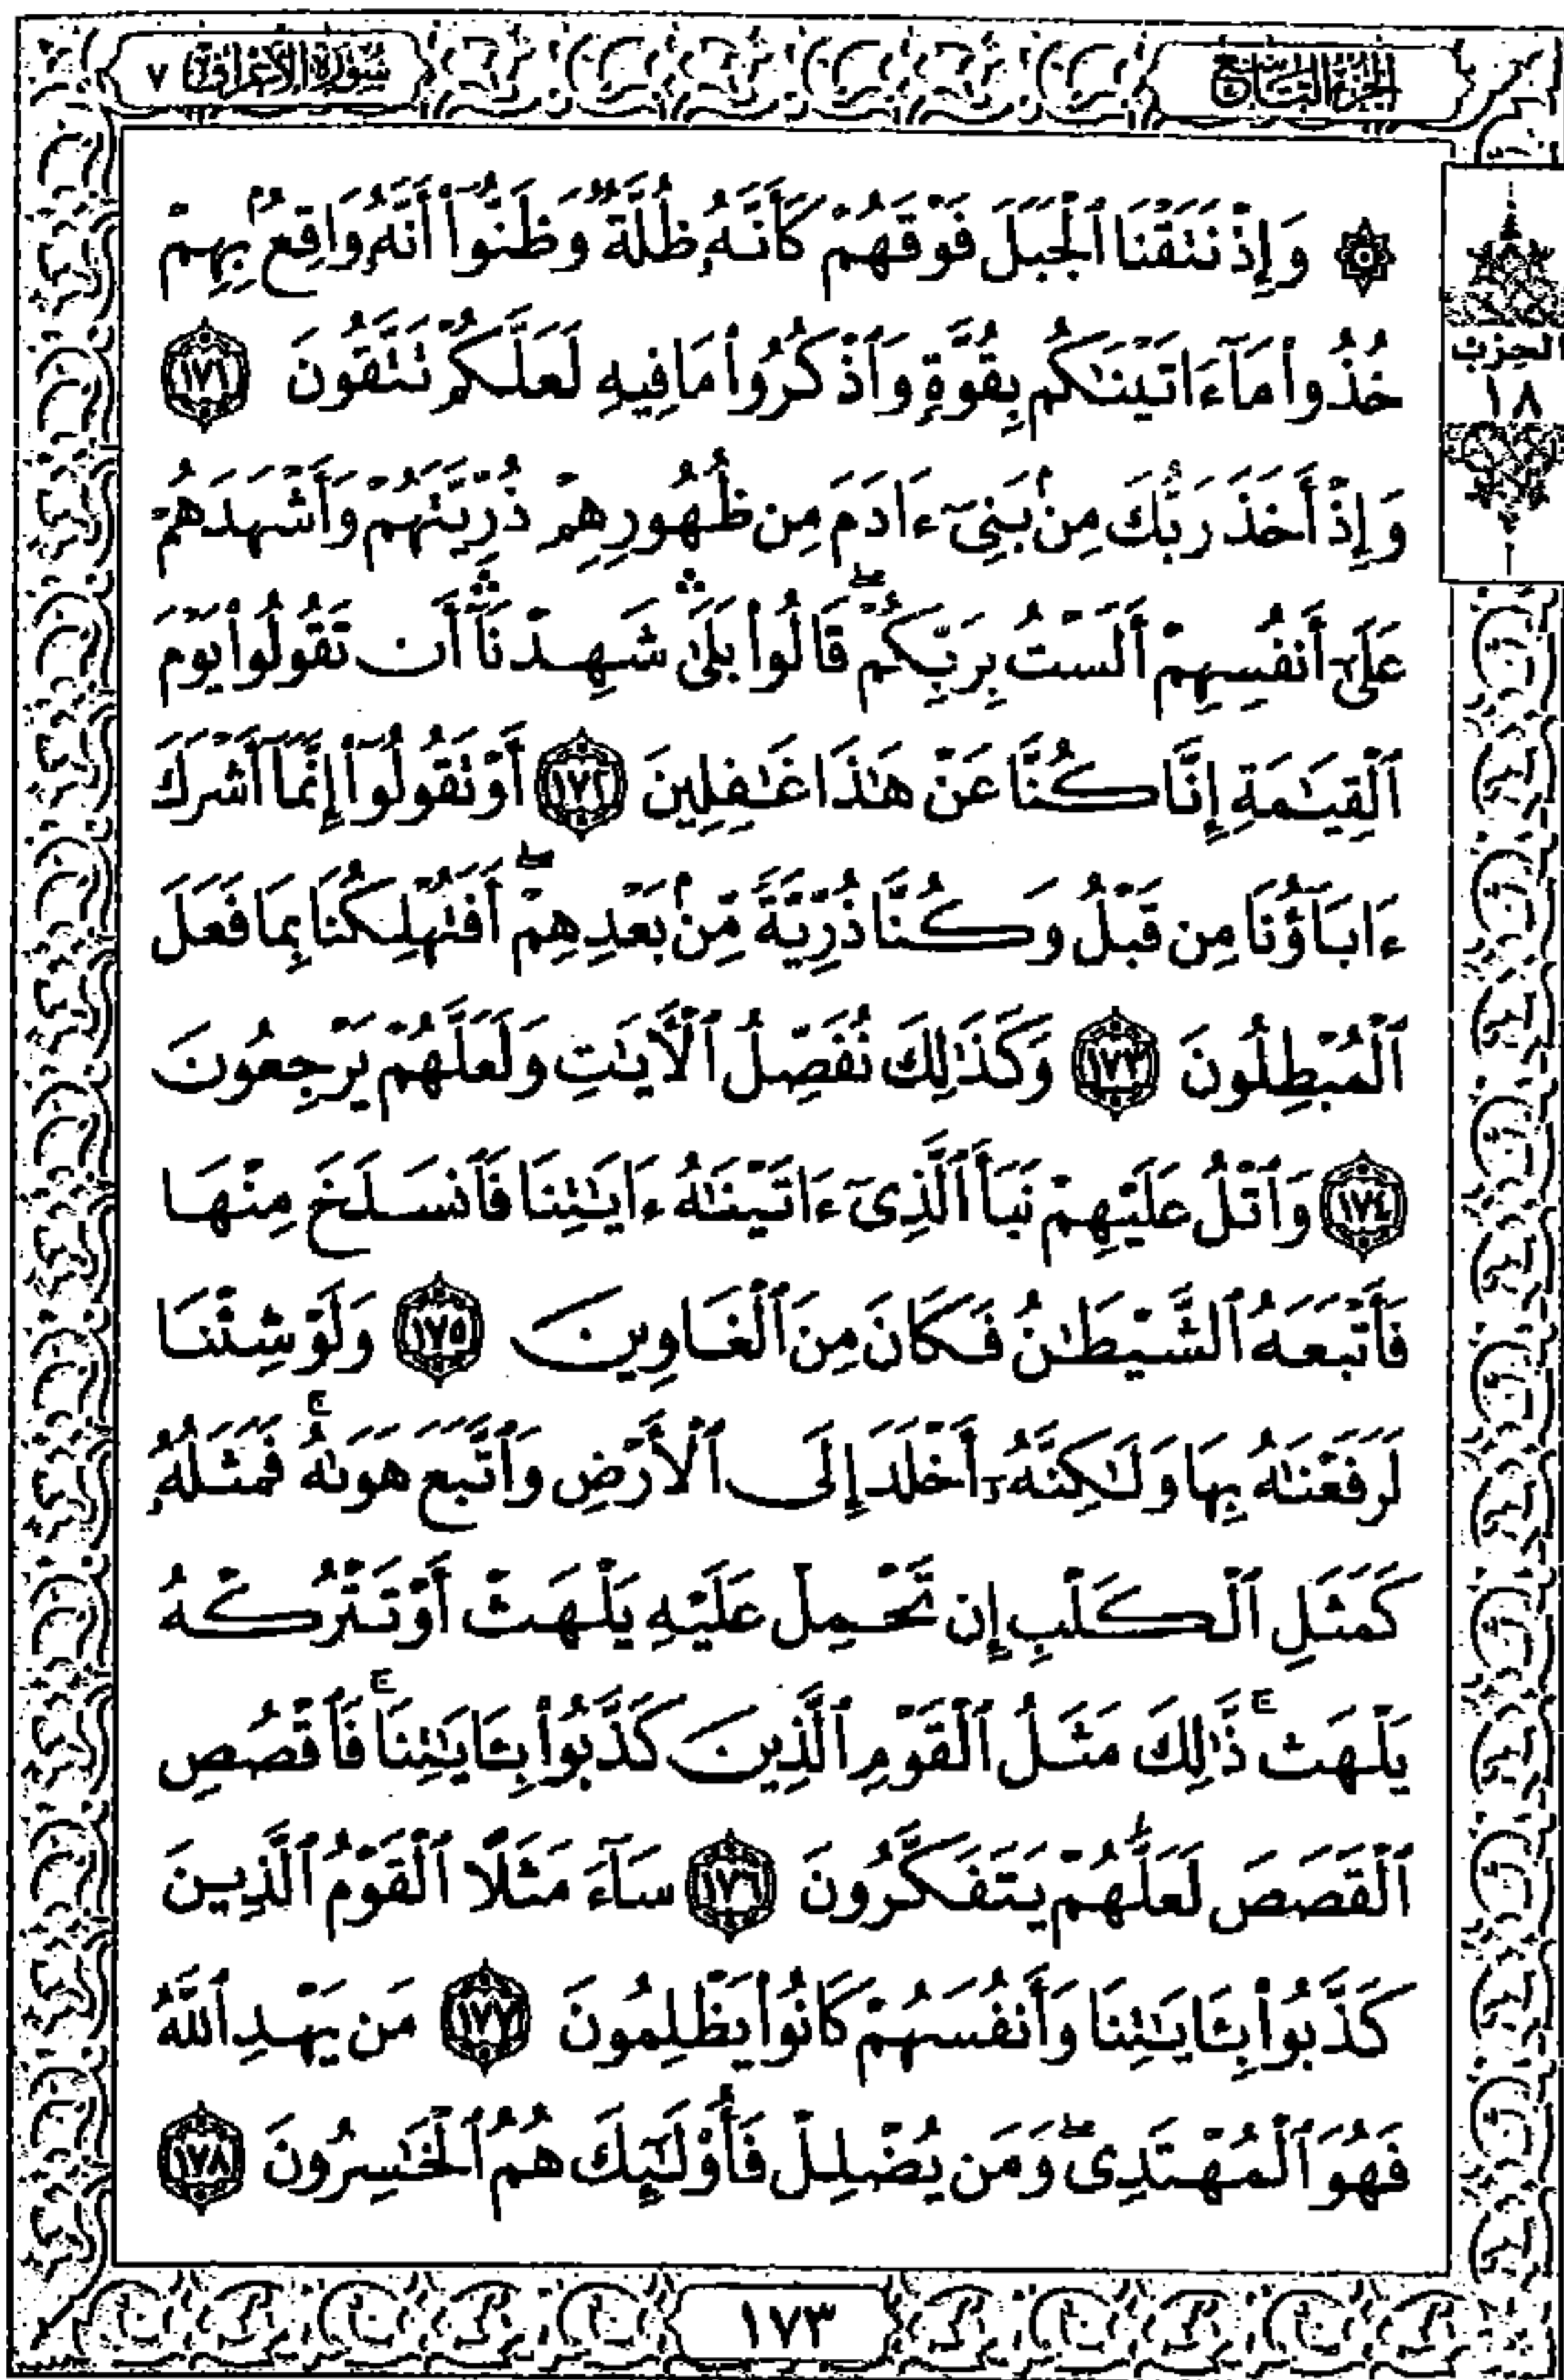 الجزء التاسع
سورة الأعراف ٧
۞ وَإِذْ نَتَقْنَا ٱلْجَبَلَ فَوْقَهُمْ كَأَنَّهُۥ ظُلَّةٌ وَظَنُّوٓا۟ أَنَّهُۥ وَاقِعٌۢ بِهِمْ
خُذُوا۟ مَآ ءَاتَيْنَٰكُم بِقُوَّةٍ وَٱذْكُرُوا۟ مَا فِيهِ لَعَلَّكُمْ تَتَّقُونَ ١٧١
وَإِذْ أَخَذَ رَبُّكَ مِنۢ بَنِىٓ ءَادَمَ مِن ظُهُورِهِمْ ذُرِّيَّتَهُمْ وَأَشْهَدَهُمْ
عَلَىٰٓ أَنفُسِهِمْ أَلَسْتُ بِرَبِّكُمْ ۖ قَالُوا۟ بَلَىٰ ۛ شَهِدْنَآ ۛ أَن تَقُولُوا۟ يَوْمَ
ٱلْقِيَٰمَةِ إِنَّا كُنَّا عَنْ هَٰذَا غَٰفِلِينَ ١٧٢ أَوْ تَقُولُوٓا۟ إِنَّمَآ أَشْرَكَ
ءَابَآؤُنَا مِن قَبْلُ وَكُنَّا ذُرِّيَّةً مِّنۢ بَعْدِهِمْ ۖ أَفَتُهْلِكُنَا بِمَا فَعَلَ
ٱلْمُبْطِلُونَ ١٧٣ وَكَذَٰلِكَ نُفَصِّلُ ٱلْأَيَٰتِ وَلَعَلَّهُمْ يَرْجِعُونَ
١٧٤ وَٱتْلُ عَلَيْهِمْ نَبَأَ ٱلَّذِىٓ ءَاتَيْنَٰهُ ءَايَٰتِنَا فَٱنسَلَخَ مِنْهَا
فَأَتْبَعَهُ ٱلشَّيْطَٰنُ فَكَانَ مِنَ ٱلْغَاوِينَ ١٧٥ وَلَوْ شِئْنَا
لَرَفَعْنَٰهُ بِهَا وَلَٰكِنَّهُۥٓ أَخْلَدَ إِلَى ٱلْأَرْضِ وَٱتَّبَعَ هَوَىٰهُ ۚ فَمَثَلُهُۥ
كَمَثَلِ ٱلْكَلْبِ إِن تَحْمِلْ عَلَيْهِ يَلْهَثْ أَوْ تَتْرُكْهُ
يَلْهَث ۚ ذَّٰلِكَ مَثَلُ ٱلْقَوْمِ ٱلَّذِينَ كَذَّبُوا۟ بِـَٔايَٰتِنَا ۚ فَٱقْصُصِ
ٱلْقَصَصَ لَعَلَّهُمْ يَتَفَكَّرُونَ ١٧٦ سَآءَ مَثَلًا ٱلْقَوْمُ ٱلَّذِينَ
كَذَّبُوا۟ بِـَٔايَٰتِنَا وَأَنفُسَهُمْ كَانُوا۟ يَظْلِمُونَ ١٧٧ مَن يَهْدِ ٱللَّهُ
فَهُوَ ٱلْمُهْتَدِى ۖ وَمَن يُضْلِلْ فَأُو۟لَٰٓئِكَ هُمُ ٱلْخَٰسِرُونَ ١٧٨
الحزب
١٨
١٧٣